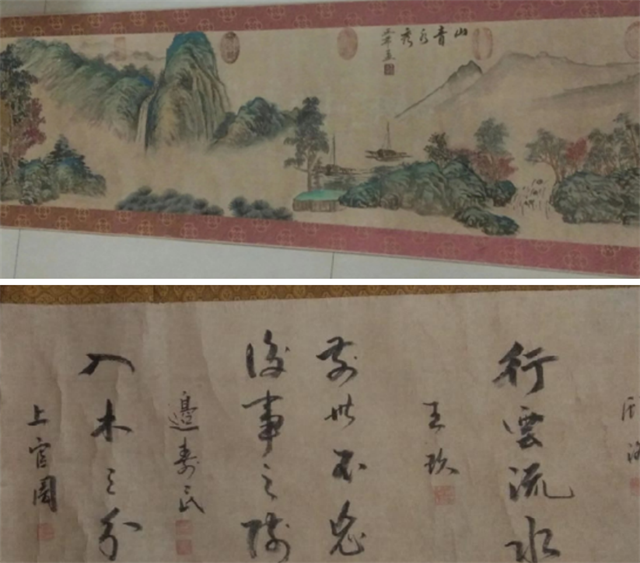 山青水秀
行雲流水
王玖
前世不忘
後事之師
邊壽民
入木三分
上官周